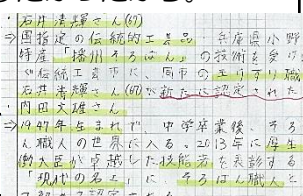 ・石井清輝さん(67)
⇒国指定の伝統的工芸品 兵庫県小野
特産「播州そろばん」の技術を受け
伝統工芸士に、同市の玉すすり職
石井清輝さん(67)が新たに認定された
・内田文雄さん
⇒1947年生まれで 中学卒業後、そろ
ん職人の世界に入る。2013年に厚生
働大臣が卓越した技能者を表彰する
「現代の名工」に、そろばん職人と